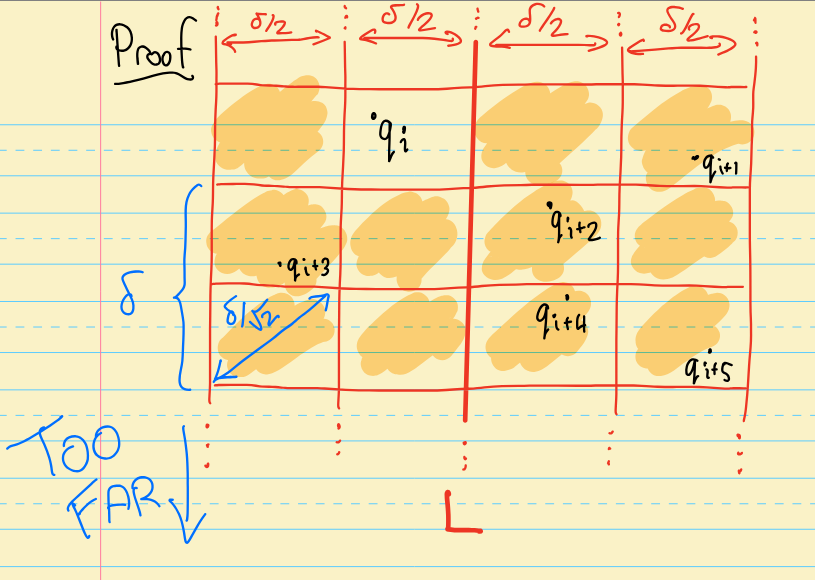 Proof
δ/2 δ/2 δ/2 δ/2
qi
qi+1
qi+2
qi+3
δ
δ/√2
qi+4
qi+5
TOO
FAR
L